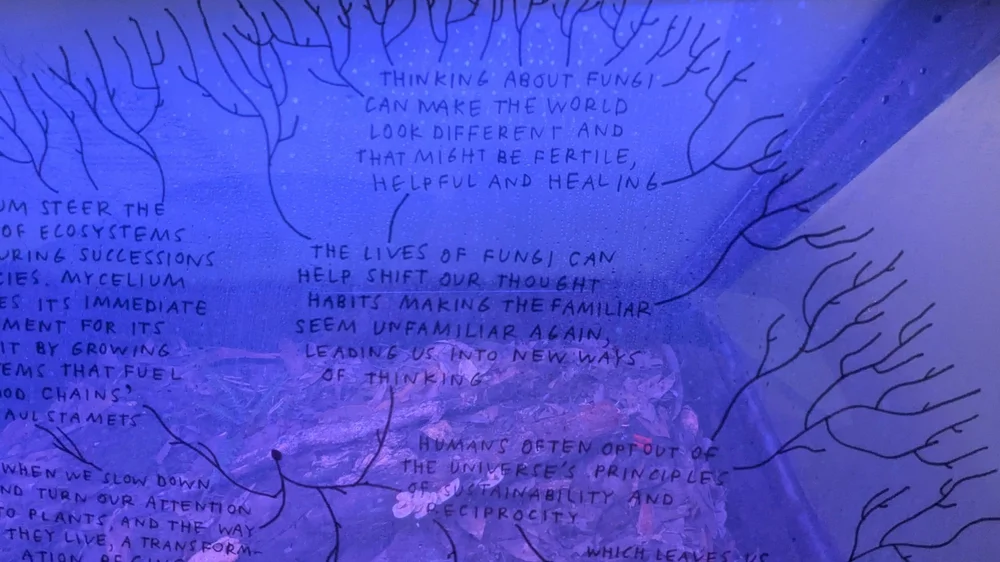 THINKING ABOUT FUNGI
CAN MAKE THE WORLD
LOOK DIFFERENT AND
THAT MIGHT BE FERTILE,
HELPFUL AND HEALING
UM STEER THE
OF ECOSYSTEMS
URING SUCCESSIONS
CIES. MYCELIUM
ES ITS IMMEDIATE
MENT FOR ITS
IT BY GROWING
TEMS THAT FUEL
OOD CHAINS'
AUL STAMETS
THE LIVES OF FUNGI CAN
HELP SHIFT OUR THOUGHT
HABITS MAKING THE FAMILIAR
SEEM UNFAMILIAR AGAIN,
LEADING US INTO NEW WAYS
OF THINKING
WHEN WE SLOW DOWN
ND TURN OUR ATTENTION
TO PLANTS, AND THE WAY
THEY LIVE, A TRANSFORM-
ATION BEGINS
HUMANS OFTEN OPT OUT OF
THE UNIVERSE'S PRINCIPLES
OF SUSTAINABILITY AND
RECIPROCITY
WHICH LEAVES US